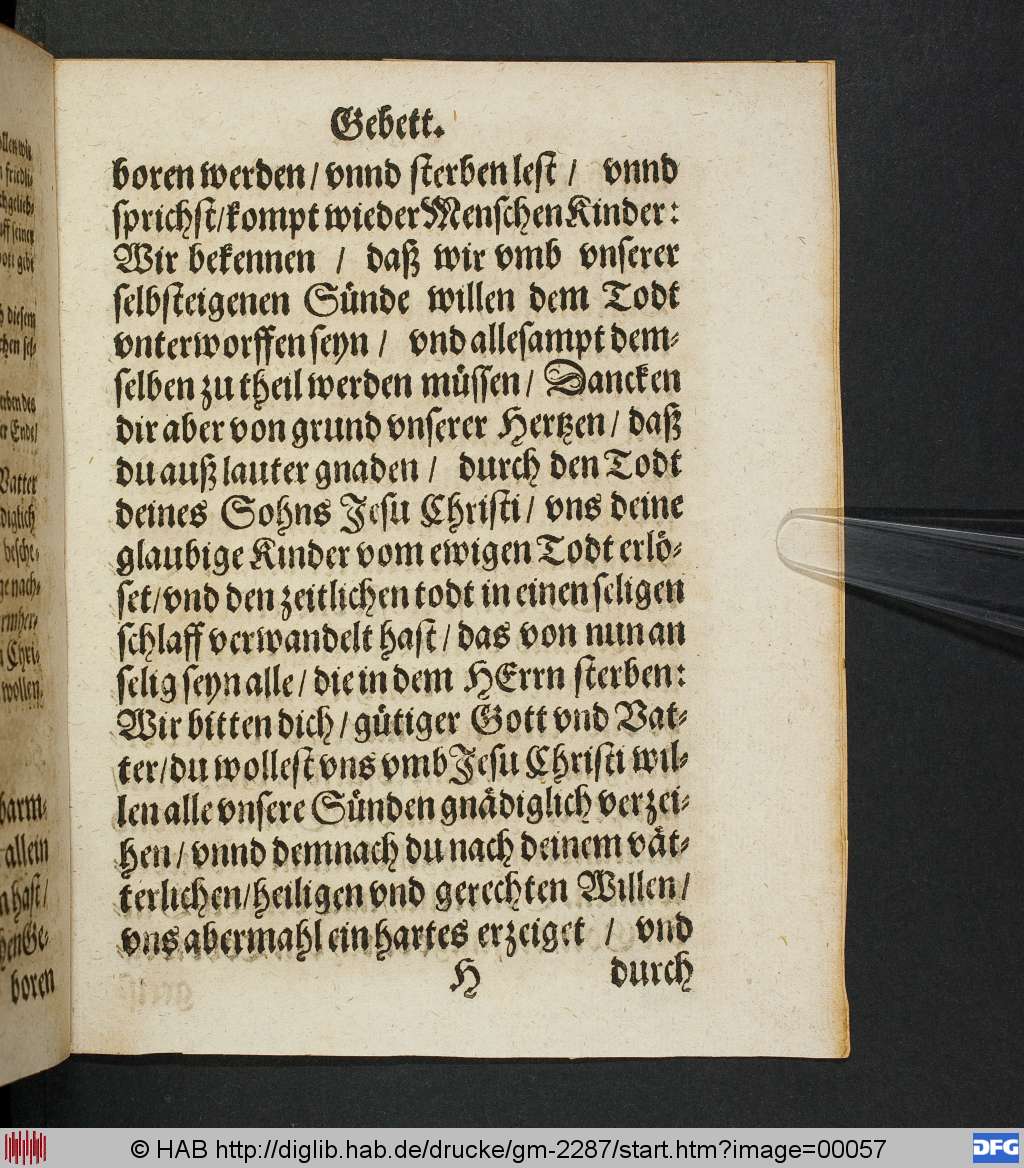 Gebett.
boren werden / vnnd sterben lest / vnnd
sprichst/kompt wieder Menschen Kinder:
Wir bekennen / daß wir vmb vnserer
selbsteigenen Sünde willen dem Todt
vnterworffen seyn / vnd allesampt dem-
selben zu theil werden müssen / Dancken
dir aber von grund vnserer Hertzen / daß
du auß lauter gnaden / durch den Todt
deines Sohns Jesu Christi / vns deine
glaubige Kinder vom ewigen Todt erlö-
set/vnd den zeitlichen todt in einen seligen
schlaff verwandelt hast / das von nun an
selig seyn alle / die in dem HErrn sterben:
Wir bitten dich / gütiger Gott vnd Vat-
ter/du wollest vns vmb Jesu Christi wil-
len alle vnsere Sünden gnädiglich verzei-
hen / vnnd demnach du nach deinem vät-
terlichen/heiligen vnd gerechten Willen /
vns abermahl ein hartes erzeiget / vnd
H durch
barm-
allein
hast /
boren
© HAB http://diglib.hab.de/drucke/gm-2287/start.htm?image=00057
DFG